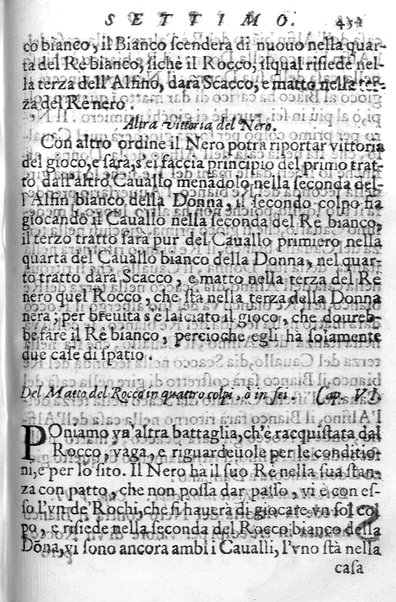 SETTIMO. 434
co bianco, il Bianco scendera di nuouo nella quar-
ta del Re bianco, siche il Rocco, ilqual risiede nel-
la terza dell'Alfino, dara Scacco, e matto nella ter-
za del Re nero.
Altra vittoria del Nero.
Con altro ordine il Nero potra riportar vittoria
del gioco, e sara, s'ei faccia principio del primo trat-
to dall'altro Cauallo menādolo nella seconda del-
l'Alfin bianco della Donna, il secondo colpo fia
giocando il Cauallo nella seconda del Re bianco,
il terzo tratto sara pur del Cauallo primiero nella
quarta del Cauallo bianco della Donna, nel quar-
to tratto dara Scacco, e matto nella terza del Re
nero quel Rocco, che stà nella terza della Donna
nera; per breuita s'e lasciato il gioco, che doureb-
be fare il Re bianco, percioche egli ha solamente
due case di spatio.
Del Matto del Rocco in quattro colpi, ò in sei. Cap. VI.
POniamo vn'altra battaglia, ch'è racquistata dal
Rocco, vaga, e riguardeuole per le conditio-
ni, e per lo sito. Il Nero ha il suo Re nella sua stan-
za con patto, che non possa dar passo, vi è con es-
so l'vn de' Rochi, che si hauera di giocare vn sol col
po, e risiede nella seconda del Rocco bianco della
Dōna, vi sono ancora ambi i Caualli, l'vno stà nella
casa